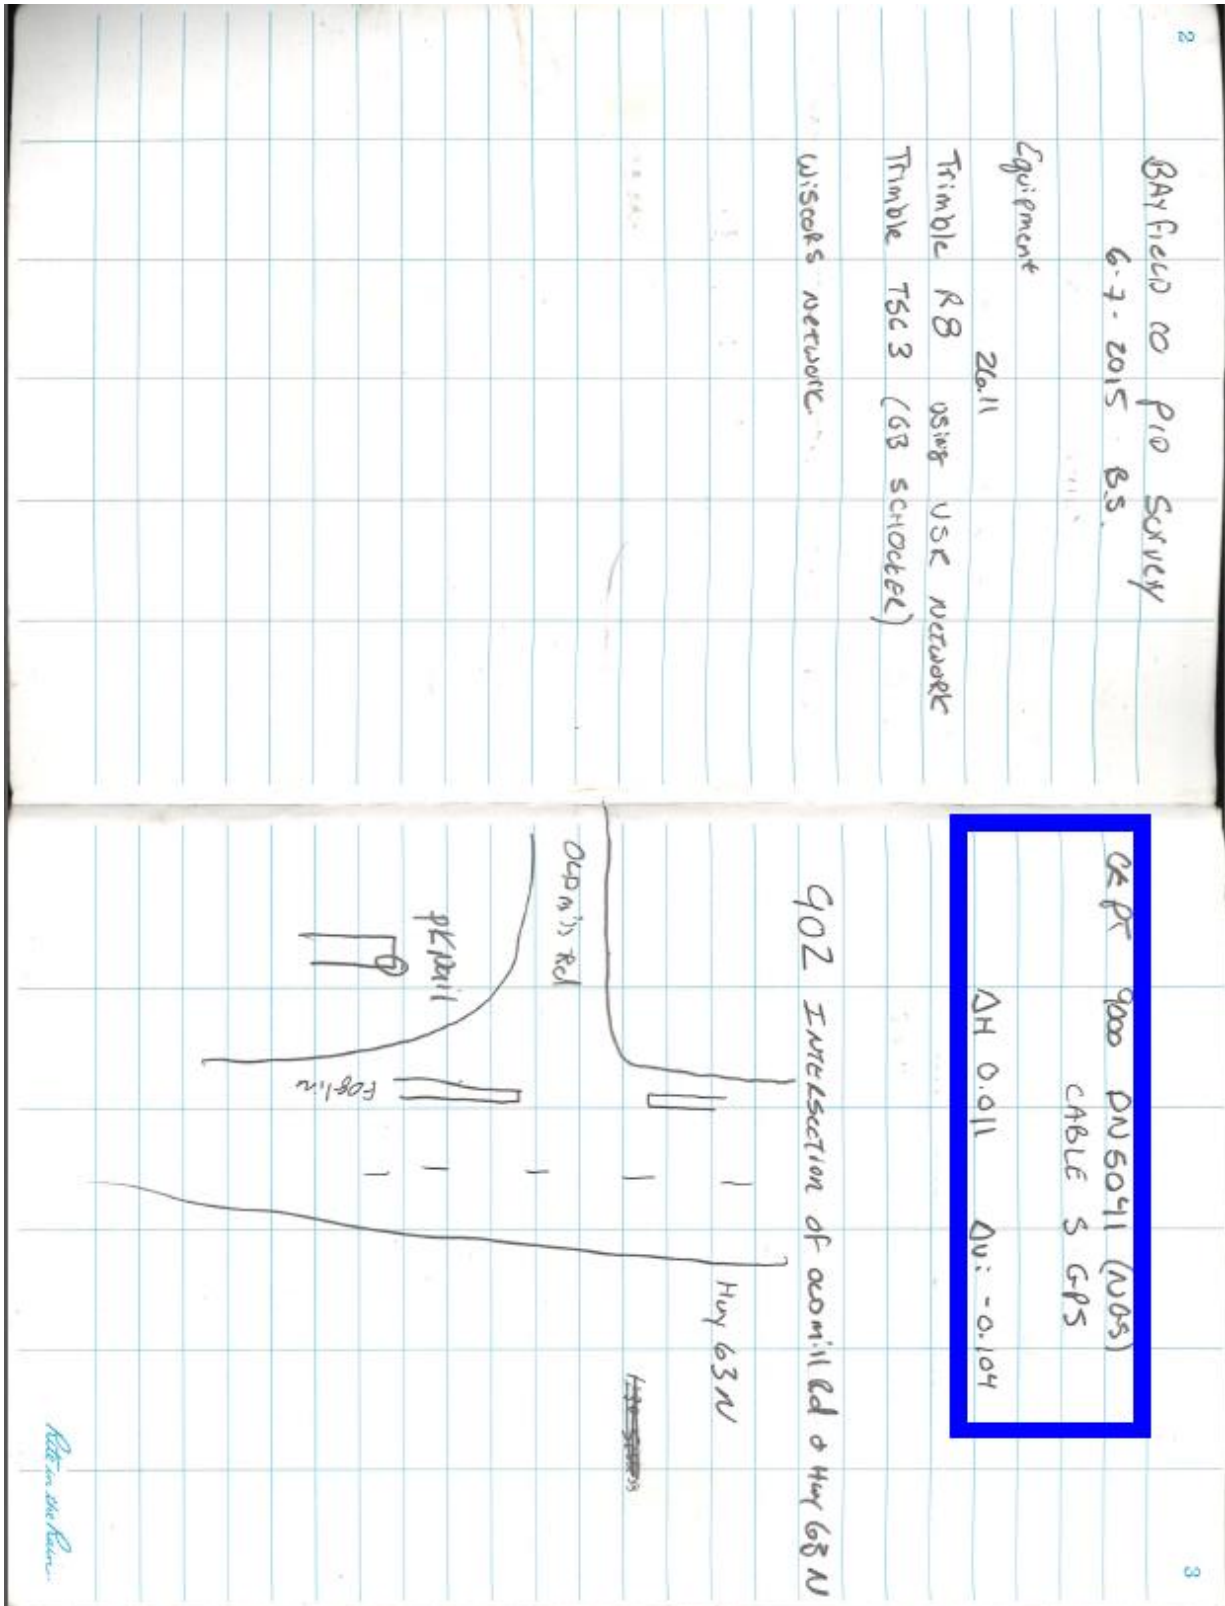 2
BAyfieLD CO PID Survey
6-7-2015 B.S.
Equipment
26.11
Trimble R8 using VSR NETWORK
Trimble TSC3 (GB SCHOCKER)
WISCORS NETWORK
3
CK PT 9000 DN5041 (NGS)
CABLE S GPS
ΔH 0.011 ΔV: -0.104
902 INTERSECTION of OLD mill Rd & Hwy 63 N
Hwy 63 N
OLD mill Rd
Foglin
PK Nail
Rite in the Rain